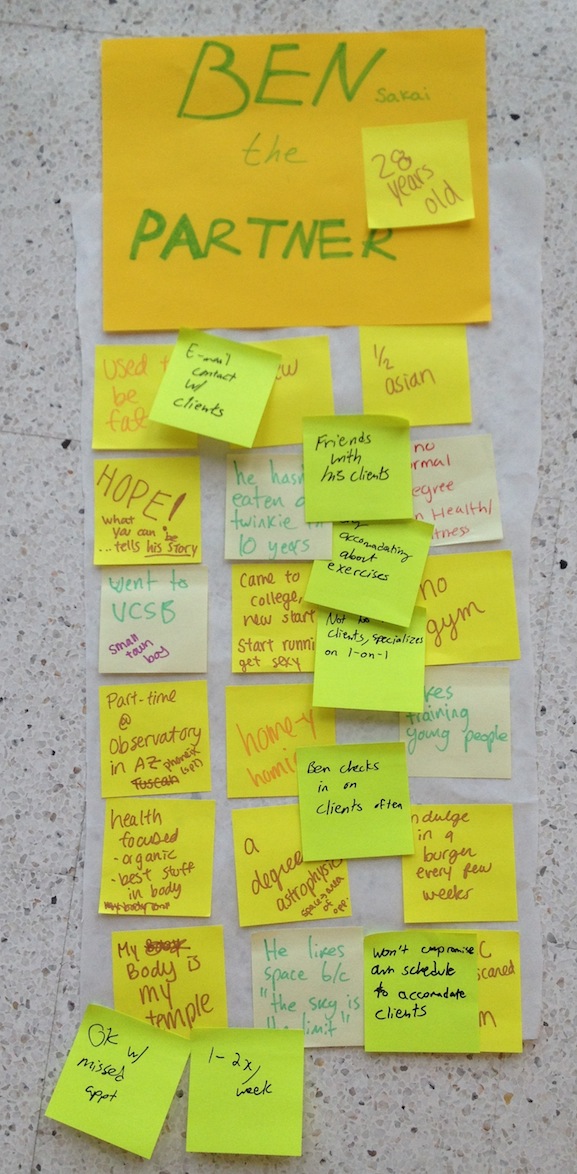 BEN
Sakai
the
PARTNER
28
years
old
used
be
E-mail
contact
w/
clients
1/2
asian
HOPE!
what
you can be
...tells his story
he
eaten
twinkie
10 years
Friends
with
his clients
no
Health/
accomadating
about
exercises
went to
UCSB
small
town
boy
Came to
college,
new start
Start
get sexy
clients, specializes
on 1-on-1
no
gym
Part-time
@
Observatory
in AZ phoenix
Tuscan
home-y
training
young people
Ben checks
in on
clients often
health
focused
- organic
- best stuff
in body
a
degree
astrophysics
in a
burger
every few
weeks
My
Body is
my
temple
He likes
space b/c
"the sky is
the limit"
won't compromise
own schedule
to accomadate
clients
OK w/
missed
appt
1-2x/
week